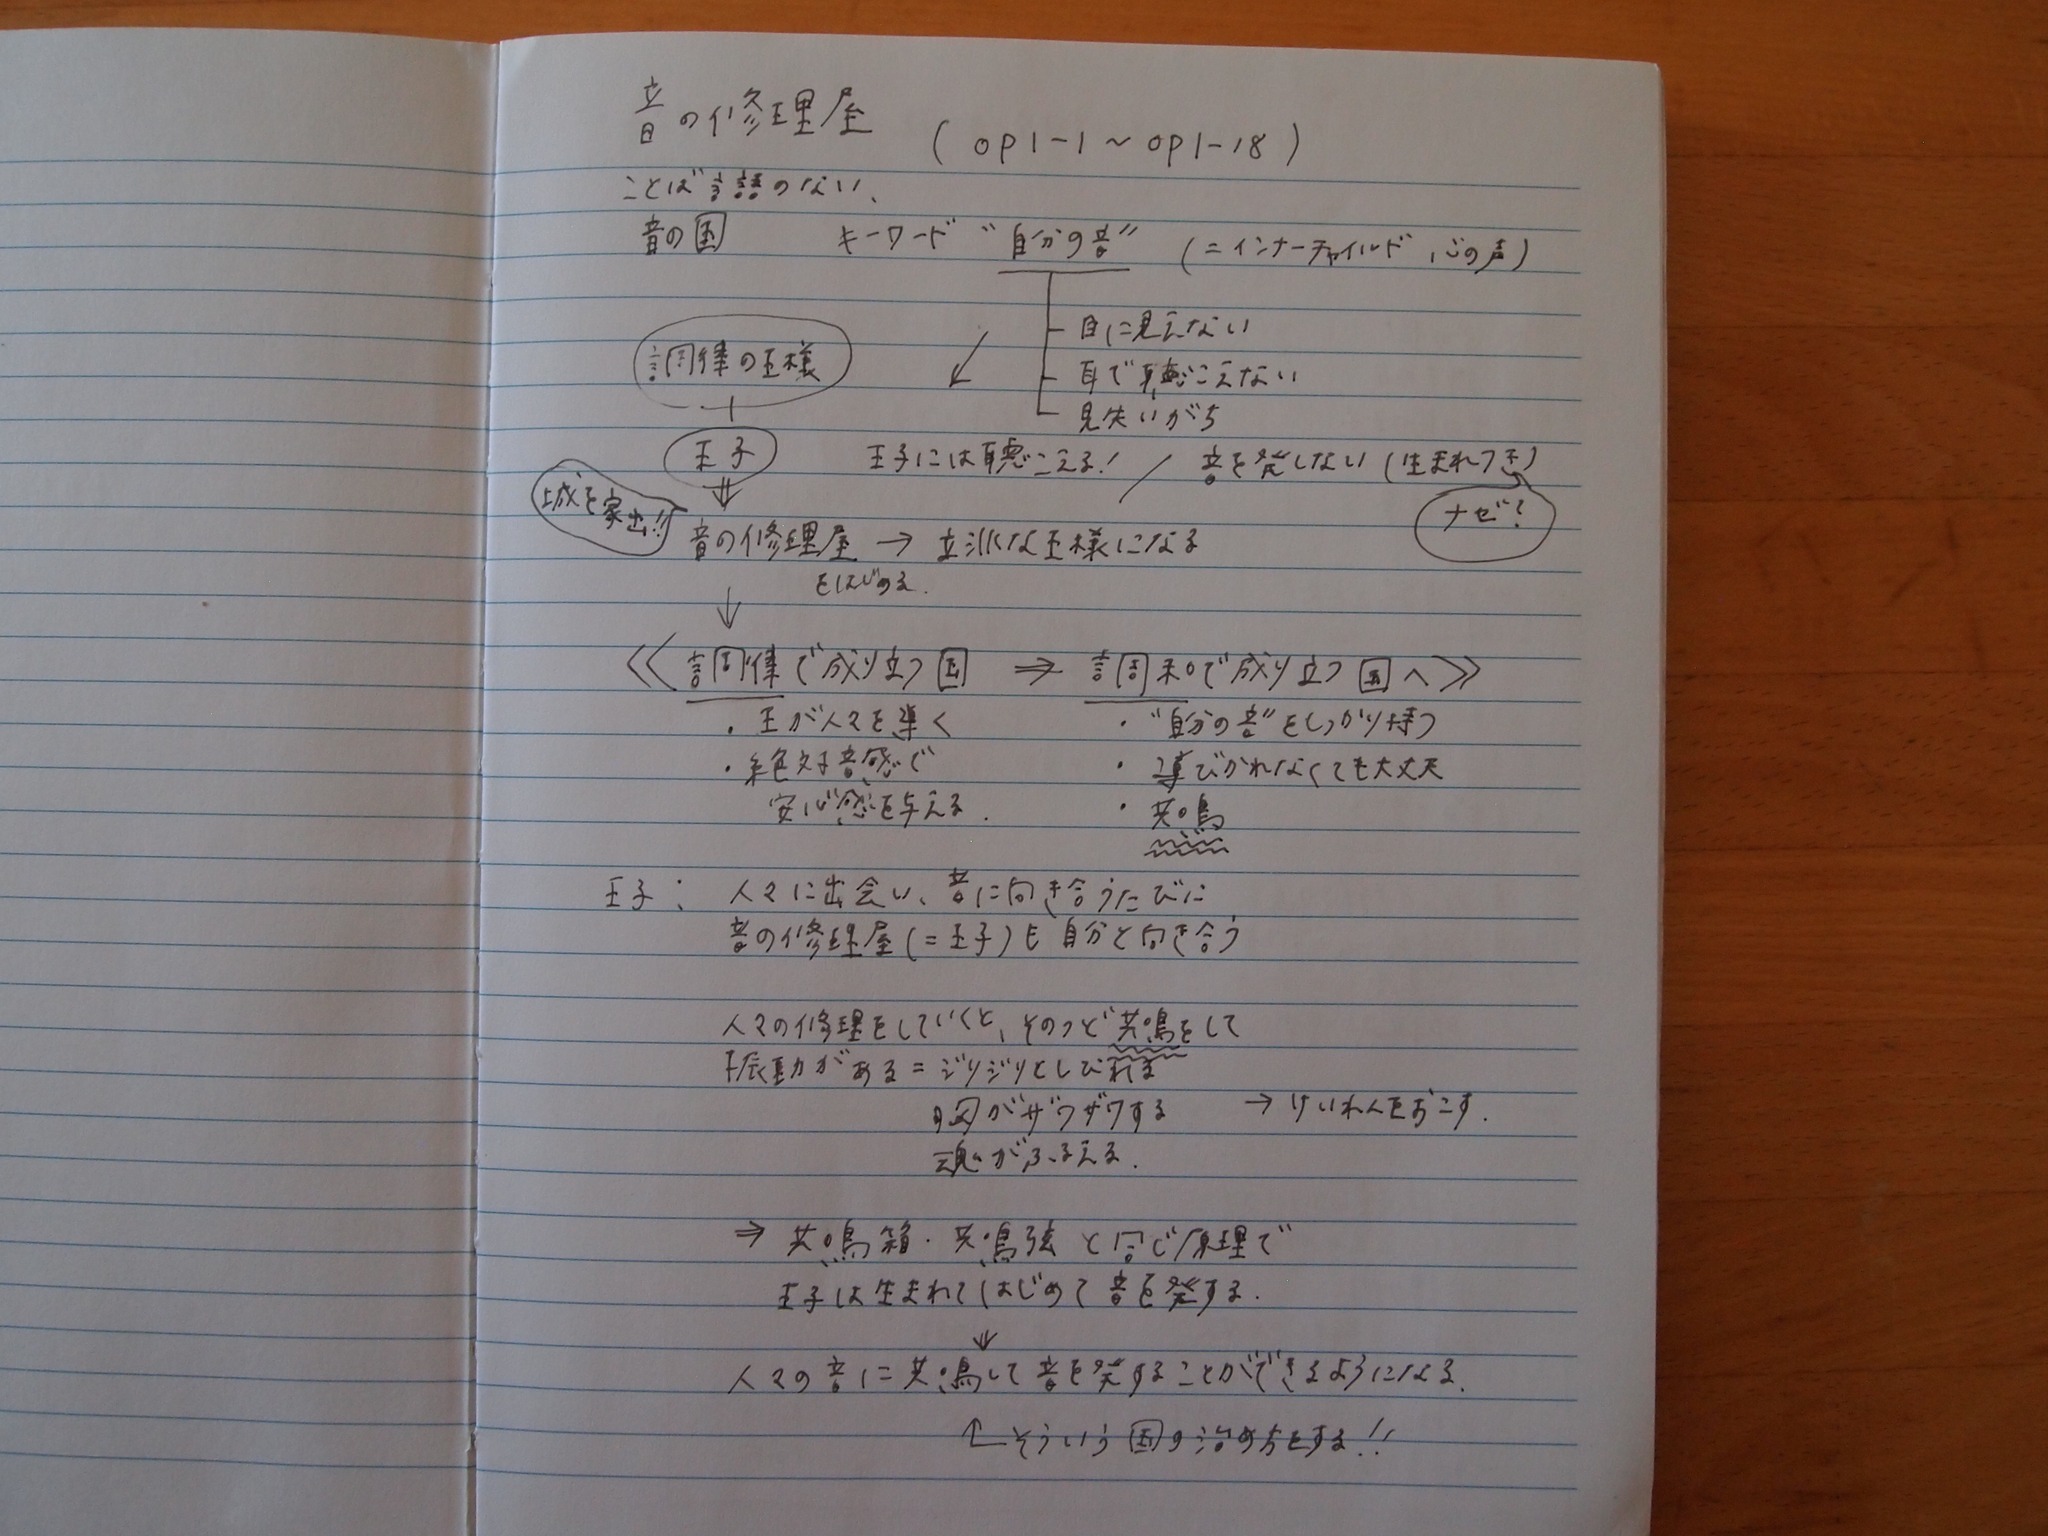 音の修理屋
(op1-1～op1-18)
ことば言語のない、
音の国 キーワード “自分の音” (=インナーチャイルド、心の声)
目に見えない
調律の王様
耳で聴こえない
見失いがち
王子 王子には聴こえる! / 音を発しない(生まれつき)
城を家出!! ナゼ?
音の修理屋 → 立派な王様になる
をはじめる.
↓
《調律で成り立つ国 ⇒ 調和で成り立つ国へ》
・王が人々を導く ・“自分の音”をしっかり持つ
・絶対音感で ・導びかれなくても大丈夫
安心感を与える. ・共鳴
王子: 人々に出会い、音に向き合うたびに
音の修理屋(=王子)も自分と向き合う
人々の修理をしていくと、そのつど共鳴をして
振動がある=ジリジリとしびれる
胸がザワザワする → けいれんをおこす.
魂がふるえる.
⇒ 共鳴箱・共鳴弦と同じ原理で
王子は生まれてはじめて音を発する.
↓
人々の音に共鳴して音を発することができるようになる.
そういう国の治め方をする!!